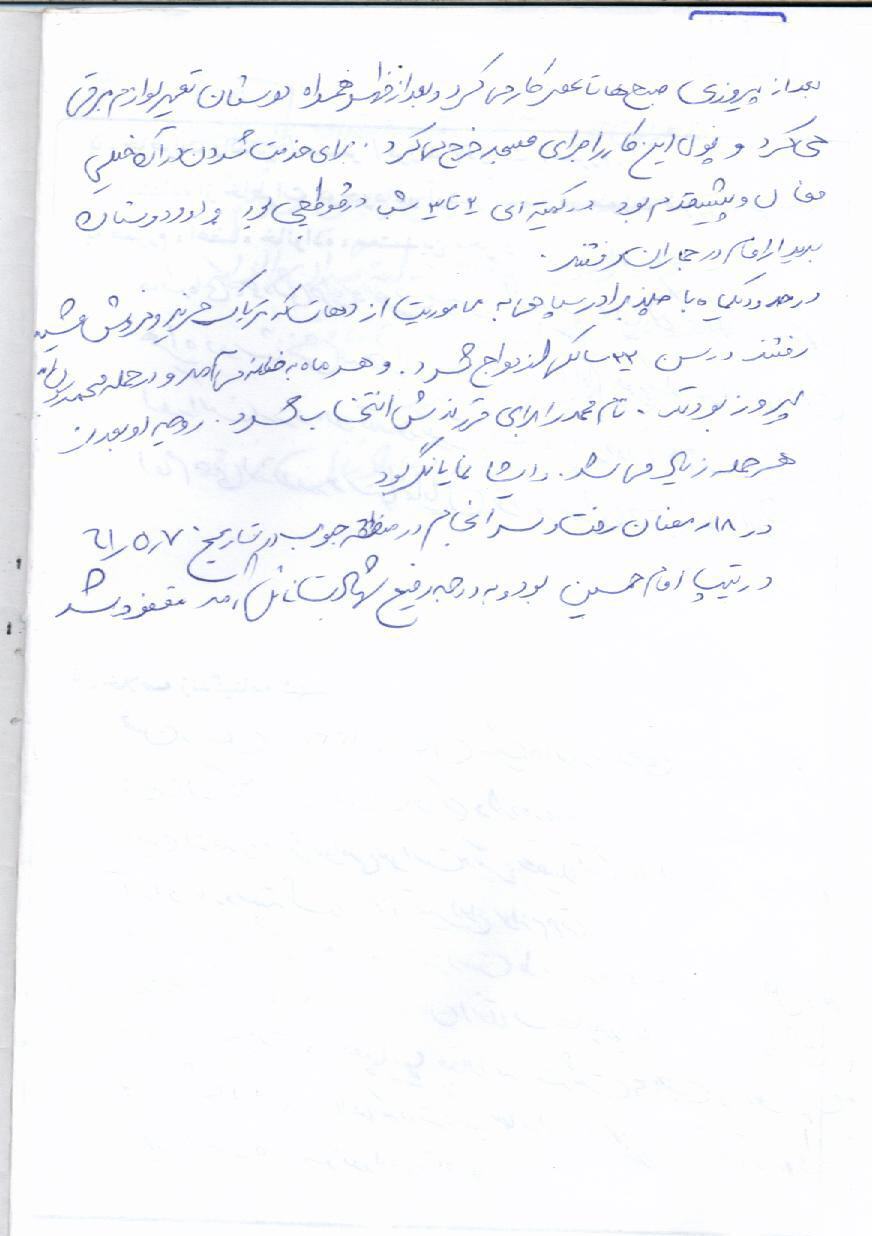 بعد از پیروزی صبح ها تا عصر کار می کرد و بعد از همراه دوستان تعمیر لوازم برقی
می کرد و پول این کار را برای مسجد خرج می کرد. برای خدمت شدن خیلی
فعال و پیشقدم بود در کمیته ای ۲ تا ۳ شب در بود و او و دوستان
بدیدار امام در جماران رفتند.
در حدود یکماه با چند برادر سپاهی به ماموریت از دهات که تریاک خرید و فروش میشد
رفتند در سن ۲۳ سالگی ازدواج کرد. و هر ماه به خانه می آمد و در حمله محمد رسول الله
پیروز بودند. نام محمد را برای فرزندش انتخاب کرد. روحیه او بعد از
هر حمله زیاد می شد. نمایانگر بود
در ۱۸ رمضان رفت و سرانجام در منطقه جنوب در تاریخ ۶۱/۵/۷
در تیپ امام حسین بود و به درجه رفیع شهادت نائل آمد مفقود شد